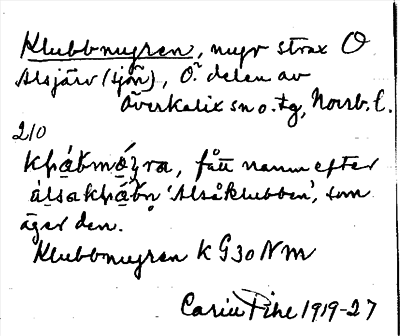 Klubbmyren, myr strax O
Alsjärv (sjön), Ö. delen av
Överkalix sn o. tg, Norrb. l.
210
kḷábmý̱ra, fått namn efter
álsakḷáb̥n 'Alsåklubben', som
äger den.
Klubbmyren K G30 N m
Carin Pihl 1919-27